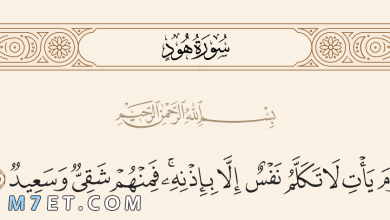 سُورَةُ هُودٍ
بِسْمِ اللَّهِ الرَّحْمَٰنِ الرَّحِيمِ
يَأْتِ لَا تَكَلَّمُ نَفْسٌ إِلَّا بِإِذْنِهِۦۚ فَمِنْهُمْ شَقِىٌّ وَسَعِيدٌ
M7ET.COM